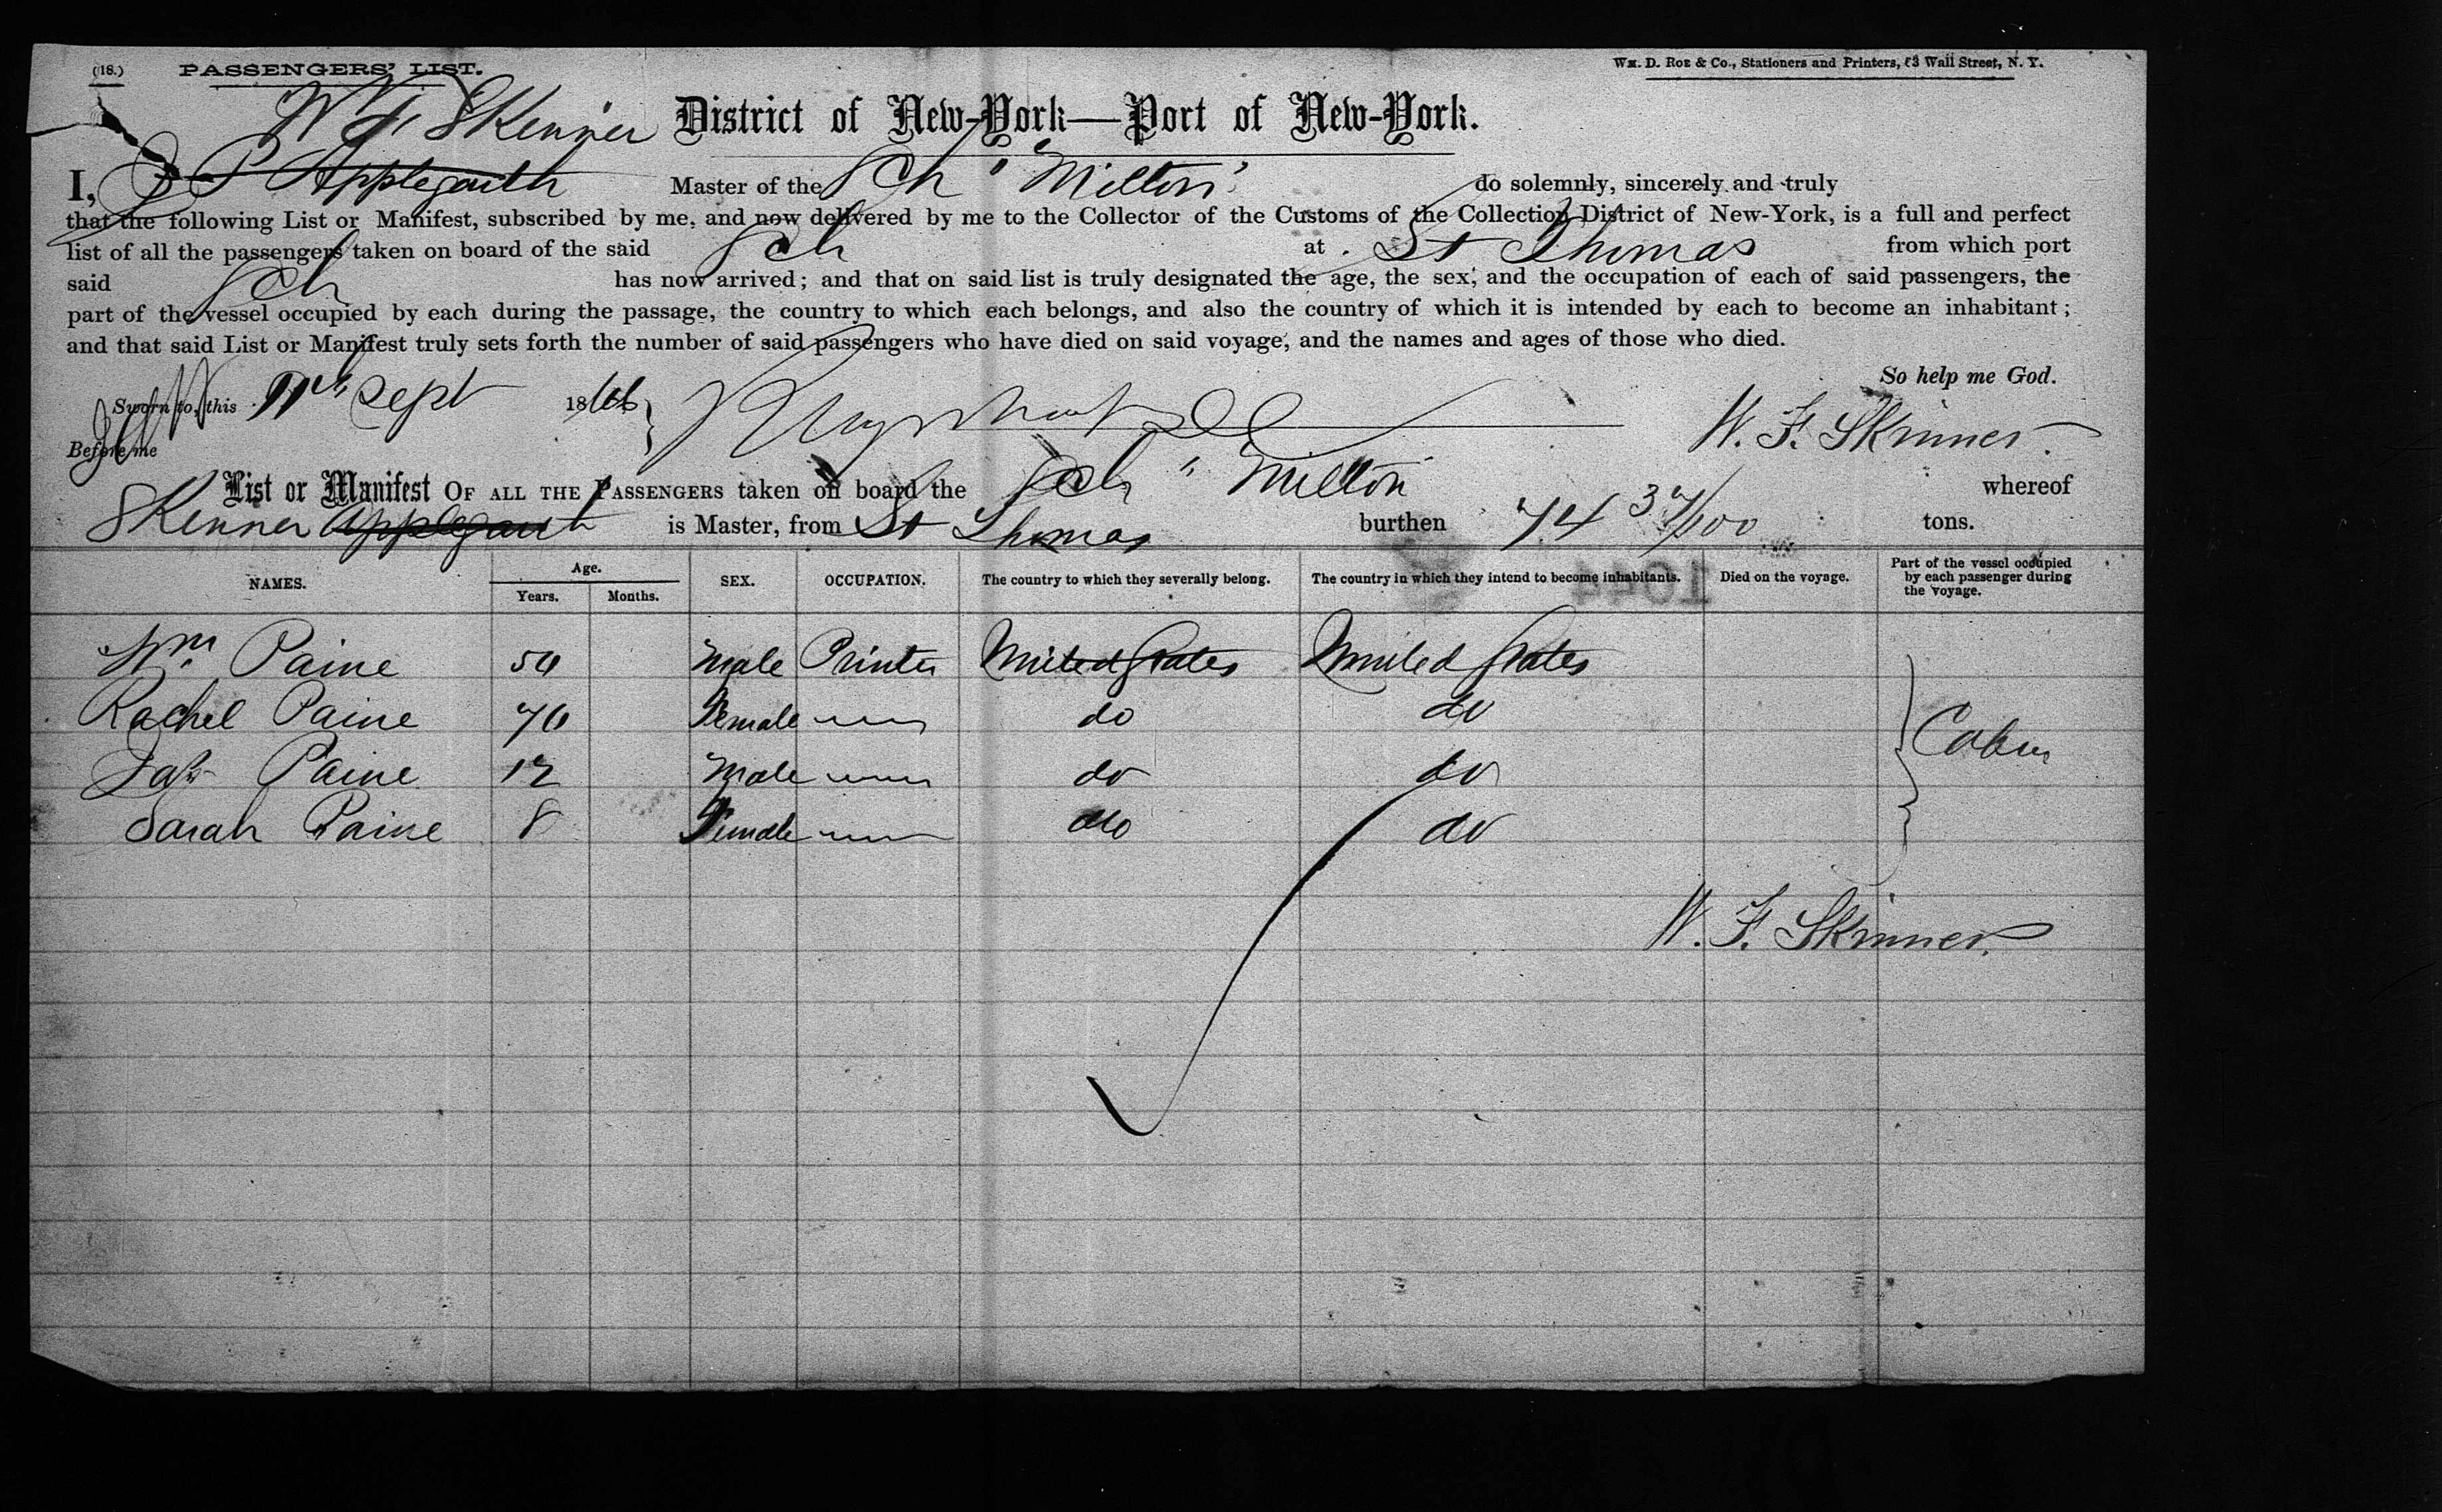 (18.) PASSENGERS' LIST.
Wm. D. Roe & Co., Stationers and Printers, 53 Wall Street, N. Y.
W F. Skenner District of New-York—Port of New-York.
I, J P Applegarth Master of the Sch "Milton" do solemnly, sincerely and truly
that the following List or Manifest, subscribed by me, and now delivered by me to the Collector of the Customs of the Collection District of New-York, is a full and perfect
list of all the passengers taken on board of the said Sch at St Thomas from which port
said Sch has now arrived; and that on said list is truly designated the age, the sex, and the occupation of each of said passengers, the
part of the vessel occupied by each during the passage, the country to which each belongs, and also the country of which it is intended by each to become an inhabitant;
and that said List or Manifest truly sets forth the number of said passengers who have died on said voyage, and the names and ages of those who died.
So help me God.
Sworn to, this 11th Sept 1866
W. F. Skinner
Before me
List or Manifest OF ALL THE PASSENGERS taken on board the Sch "Milton whereof
Skenner Applegarth is Master, from St Thomas burthen 74 37/100 tons.
NAMES. Age. Years. Months. SEX. OCCUPATION. The country to which they severally belong. The country in which they intend to become inhabitants. Died on the voyage. Part of the vessel occupied by each passenger during the voyage.
1044
Wm. Paine 50 Male Printer United States United States
Rachel Paine 70 Female do do
Cabin
Jas Paine 12 Male do do
Sarah Paine 8 Female do do
W. F. Skinner